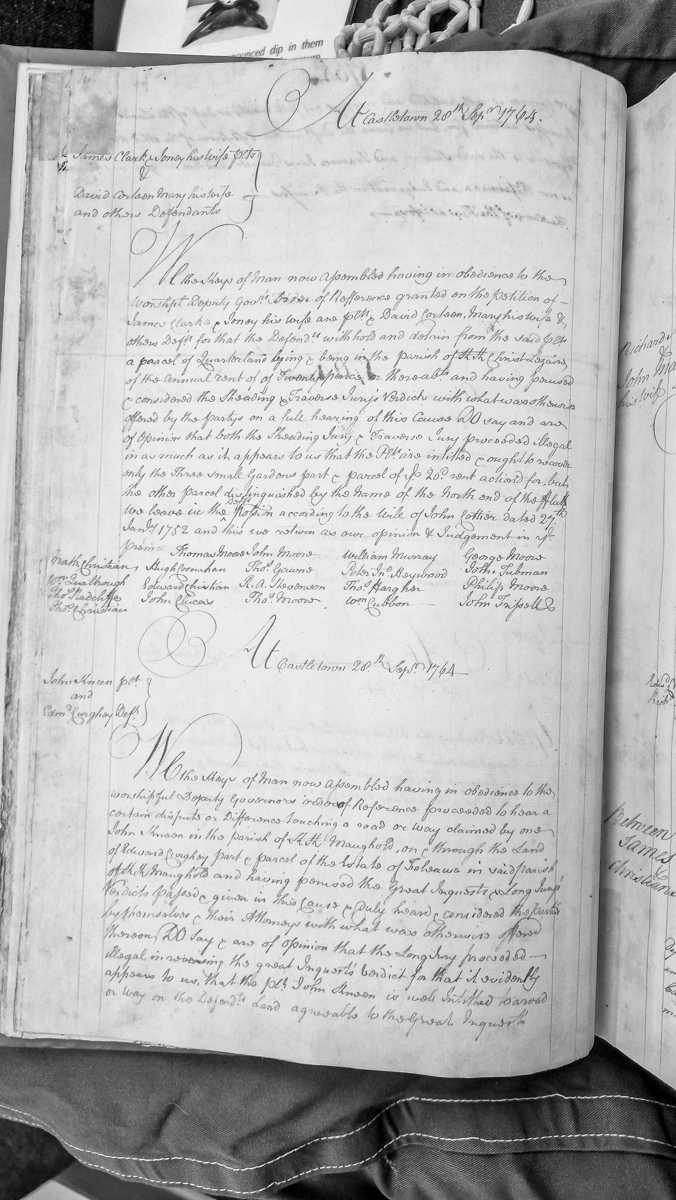 nounced dip in them
At Castletown 28th Sepr 1764.
James Clark & Joney his wife plts
&
David Corleon Mary his wife
and others Defendants
We the Keys of Man now Assembled having in obedience to the
worshipl Deputy Govrs Order of Refference granted on the petition of
James Clarke & Joney his wife are plts & David Corleon, Mary his wife &
others Defts for that the Defendts withhold and detain from the said plts
a parcel of Quarterland lying & being in the parish of Kk Christ Lezaire
of the annual rent of of Twenty pence or thereabts and having perused
& considered the Sheading & Traverse Jury's Verdicts with what was otherwise
offered by the partys on a full hearing of this Cause DO say and are
of Opinion that both the Sheading Jury & Traverse Jury proceeded illegal
in as much as it appears to us that the Plts are intitled & ought to recover
only the Three small Gardens part & parcel of ye 20d rent actiond for, but
the other parcel distinguished by the Name of the North end of the Flatt
we leave in the Defts Possion according to the Will of John Cotter dated 27th
Janry 1752 and this we return as our opinion & Judgement in ye
premis
Thomas Moore John Moore William Murray George Moore
Nath Christian Hugh Cosnahan Thos Gawne Peter Jno Heywood John Tubman
Wm Qualtrough Edward Christian R. A. Stevenson Thos Hargher Philip Moore
Thos Radcliffe John Clucas Thos Moore Wm Cubbon John Frissell
Thos Christian
At Castletown 28th Sepr 1764
John Kneen plt
and
Edmd Curghey Deft
We the Keys of Man now Assembled having in obedience to the
worshipful Deputy Governors order of Reference proceeded to hear a
certain dispute or Difference touching a road or way claimed by one
John Kneen in the parish of Kk Maughold, on & through the Land
of Edward Curghey part & parcel of the Estate of in said parish
of Kk Maughold and having perused the Great Inquests & Long Jury's
Verdicts passed & given in this Cause & Duly heard & considered the parties
by themselves & their Attorneys with what was otherwise offered
thereon, DO say & are of opinion that the Long Jury proceeded
illegal in reversing the great Inquests verdict for that it evidently
appears to us, that the plt John Kneen is well Intitled to a road
or way on the Defendts Land agreeable to the Great Inquests
Richard
John
his wife
Between
James
Christian